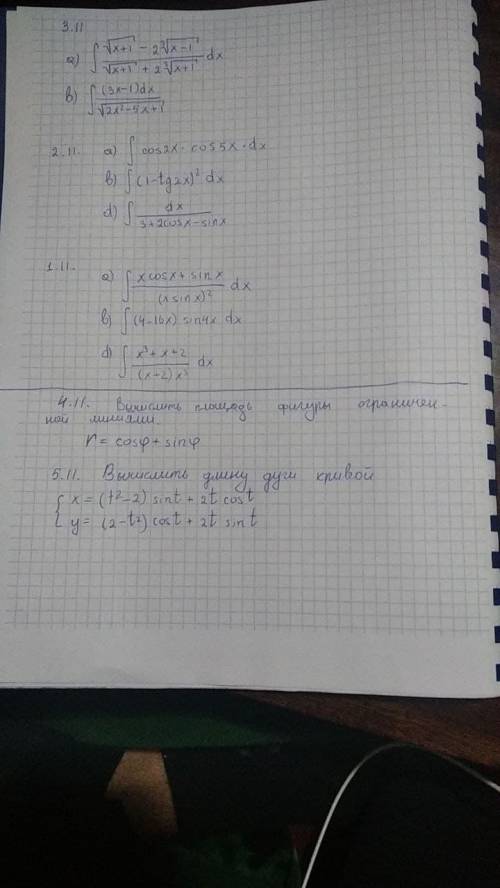 3.11
a) ∫ (√(x+1) - 2∛(x-1)) / (√(x+1) + 2∛(x+1)) dx
b) ∫ (3x-1)dx / √(2x²-5x+1)
2.11. a) ∫ cos2x · cos5x · dx
b) ∫ (1-tg2x)² dx
d) ∫ dx / (3+2cosx-sinx)
1.11.
a) ∫ (xcosx + sinx) / (xsinx)² dx
b) ∫ (4-16x) sin4x dx
d) ∫ (x³+x+2) / ((x+2)x³) dx
4.11. Вычислить площадь фигуры ограничен-
ной линиями.
r = cosφ + sinφ
5.11. Вычислить длину дуги кривой
{ x = (t²-2) sint + 2t cost
y = (2-t²) cost + 2t sint